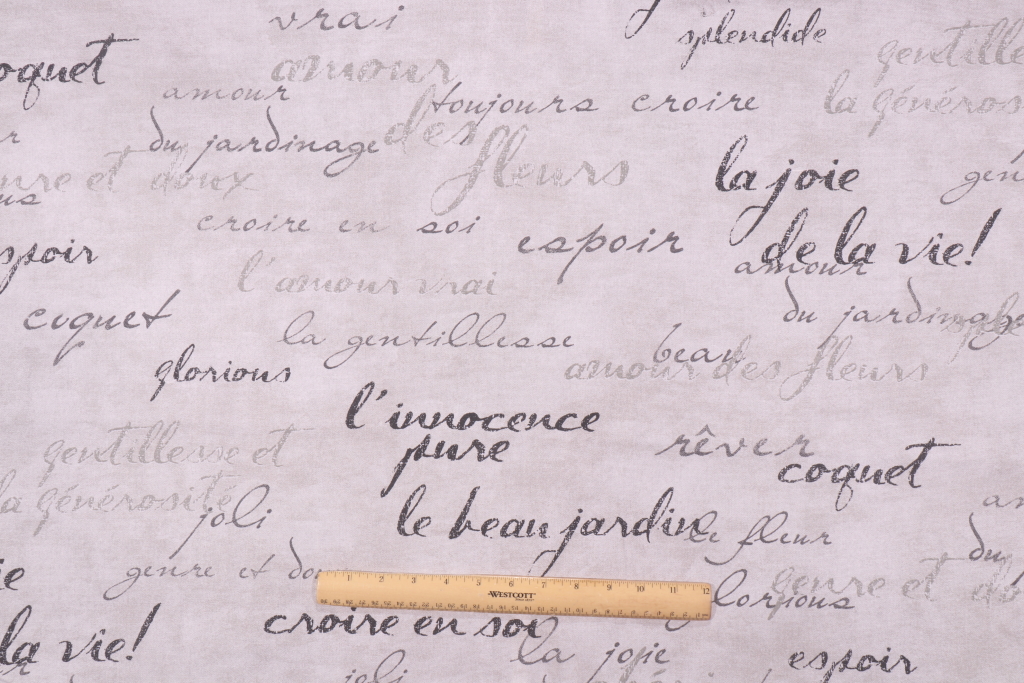 vrai
splendide
coquet
amour
gentille
amour
toujours croire
la généros
du jardinage
des
fleurs
genre et doux
la joie
gen
croire en soi
espoir
de la vie!
espoir
amour
l'amour vrai
coquet
du jardinage
la gentillesse
beau
amour des fleurs
glorious
l'innocence
pure
rêver
gentillesse et
coquet
la générosité
joli
le beau jardin
le fleur
du
genre et doux
genre et do
1 2 3 4 5 6 7 8 9 10 11 12
WESTCOTT
glorious
croire en soi
la vie!
la joie
espoir
joli